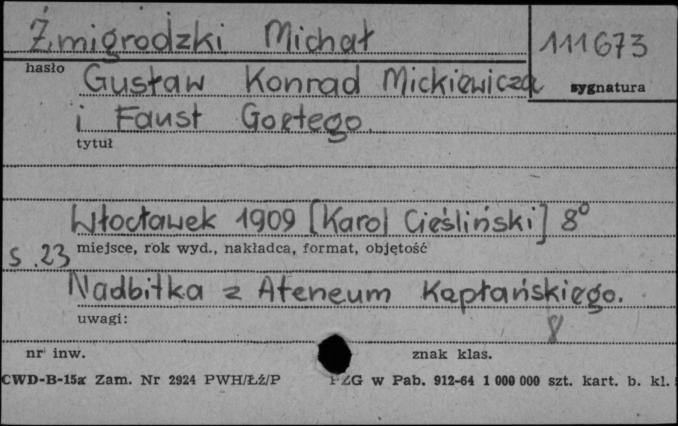 Żmigrodzki Michał
111673
hasło
sygnatura
Gustaw Konrad Mickiewicza
i Faust Goetego.
tytuł
Włocławek 1909 [Karol Cieśliński] 8°
s. 23 miejsce, rok wyd., nakładca, format, objętość
Nadbitka z Ateneum Kapłańskiego.
uwagi:
8
nr inw.
znak klas.
CWD-B-15a Zam. Nr 2924 PWH/Łź/P PZG w Pab. 912-64 1 000 000 szt. kart. b. kl.